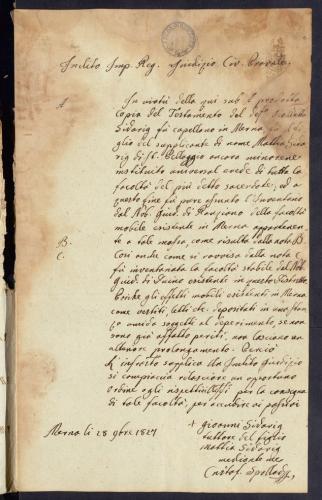 Inclito Imp. Reg. Giudizio Civ. Provale
A In virtù della qui sub A prodotta
Copia del Testamento del Sacerdote
Sidarig fù capellano in Merna
figlio del supplicante di nome Mattia
di St. Pelleggio ancora minorene
instituito universal erede di tutta la
facoltà del più detto sacerdote, ed a
questo fine fù pure assunto l'Inventario
dal Nob. Giud. di della facoltà
mobile esistente in Merna appartenente
B. a tale massa, come risulta dalla nota B.
C. Con anche come si ravvisa dalla nota C
fù inventariata la facoltà stabile dal Nob.
Giud. di Duino esistenti in questo
gli effetti mobili esistenti in Merna
come vestiti, letti che depositati in una stan-
za umida soggetti al deperimento, se non
sono già affatto periti, non lasciano un
ulteriore prolongamento. Perciò
L'infrascritto supplica Inclito Giudizio
si compiaccia rilasciare un opportuno
ordine agli rispettivi per la consegna
di tale facoltà, per accudire ai passivi
Merna li 28 9bre 1827
+ Giovanni Sidarig
tuttore del figlio
Mattia Sidarig
mediante me